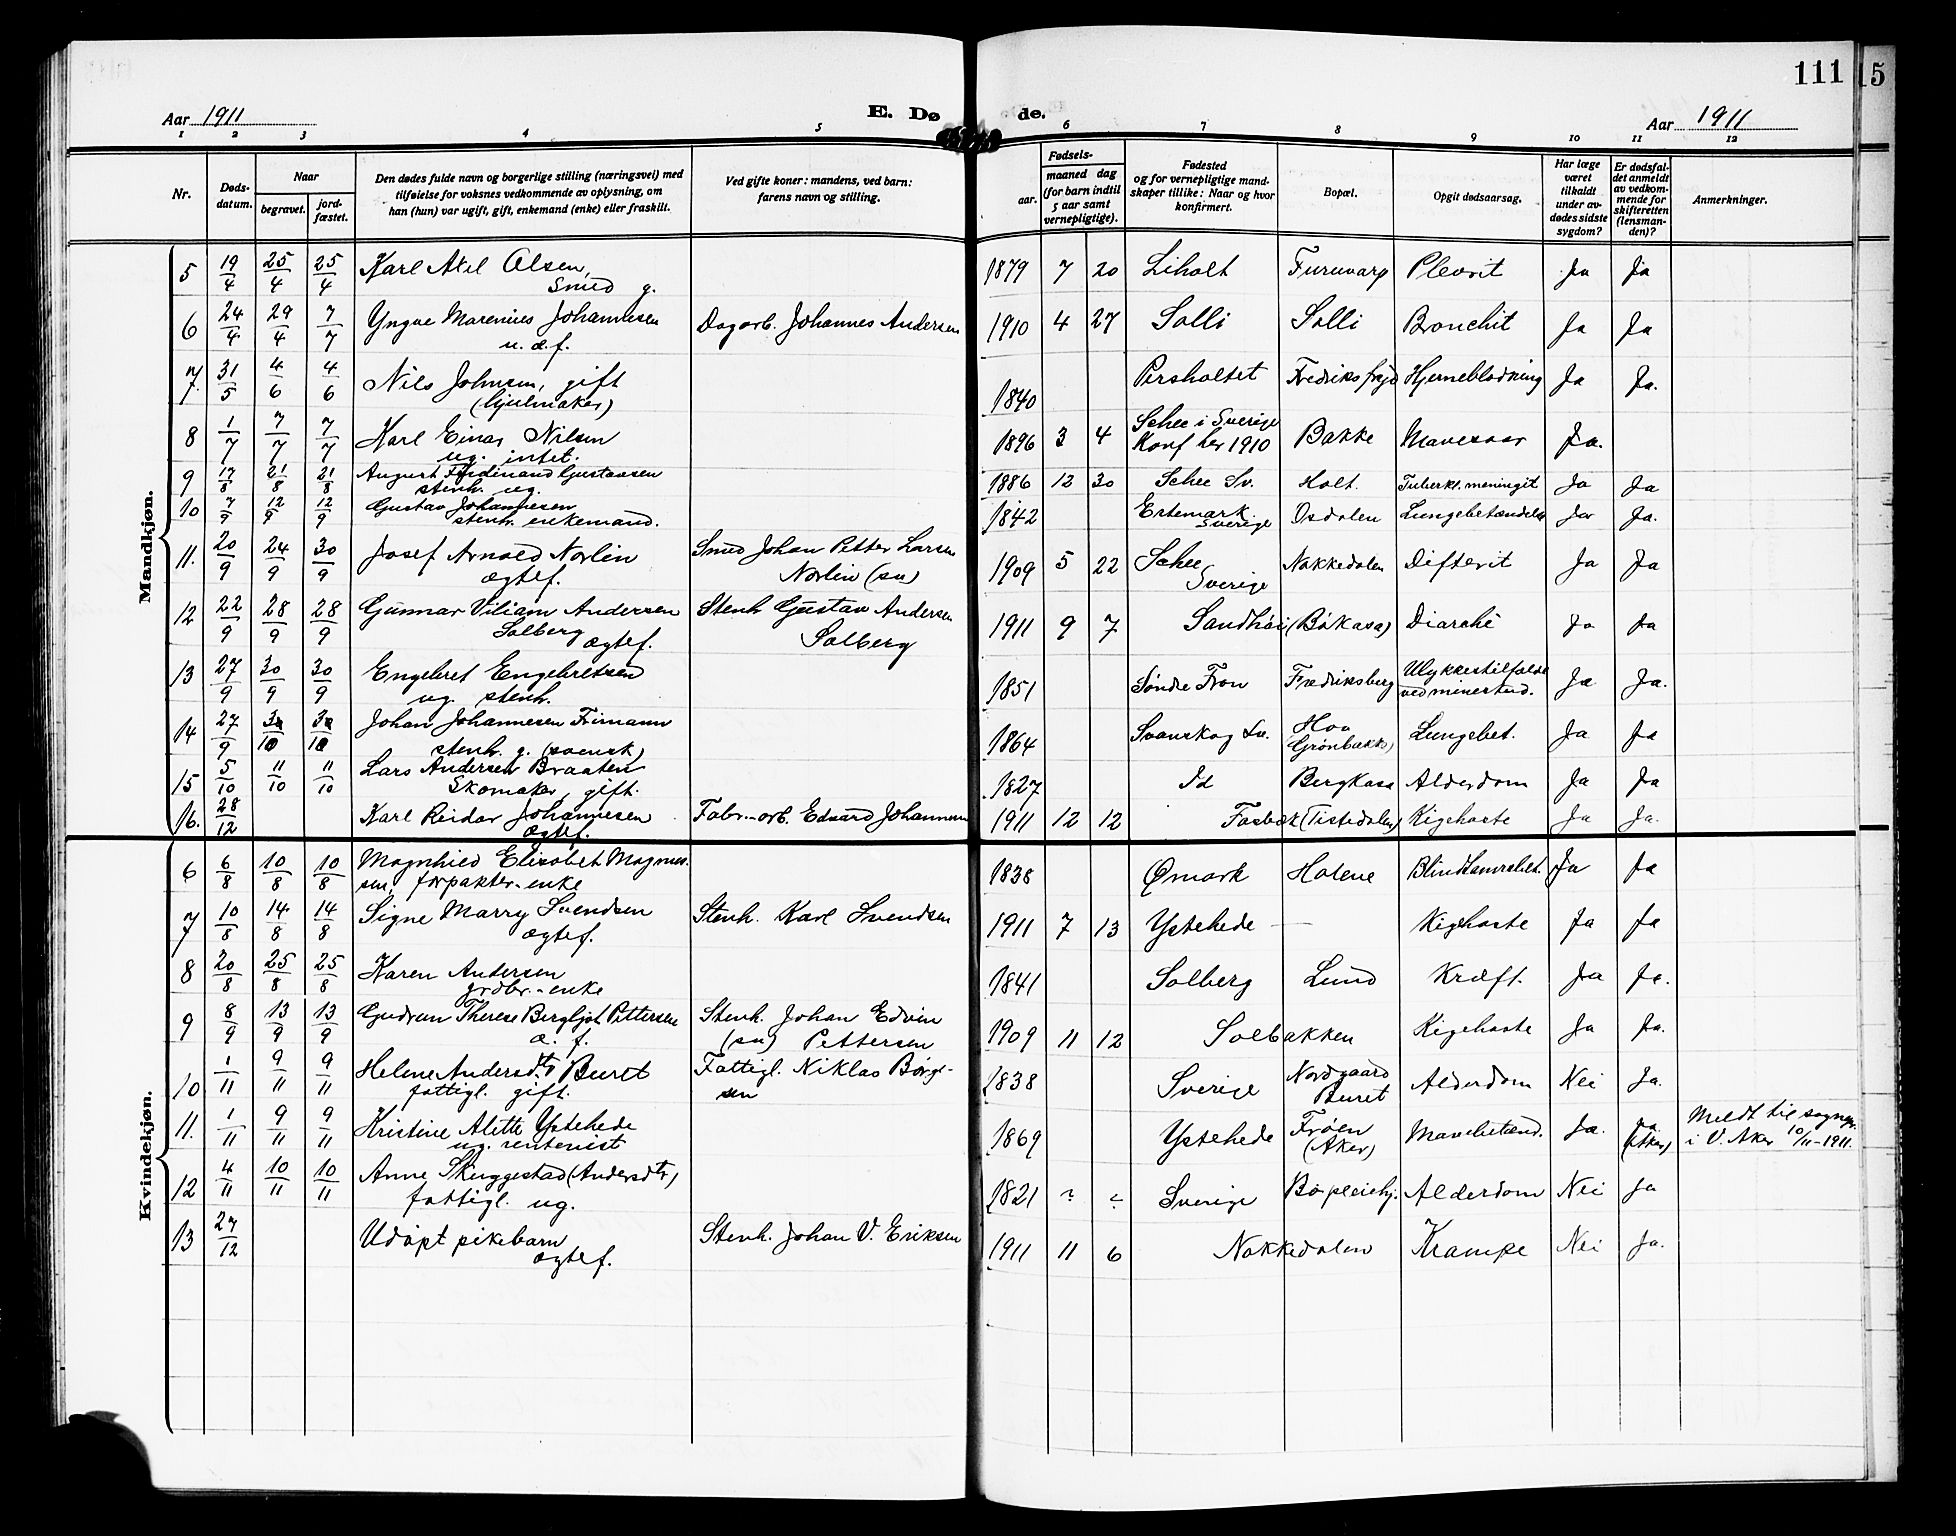 111
15
Aar 1911
E. Dø
de.
Aar 1911
1 2 3 4 5 6 7 8 9 10 11 12
Nr.
Døds-datum.
Naar
begravet.
jord-fæstet.
Den dødes fulde navn og borgerlige stilling (næringsvei) med
tilføielse for voksnes vedkommende av oplysning, om
han (hun) var ugift, gift, enkemand (enke) eller fraskilt.
Ved gifte koner: mandens, ved barn:
farens navn og stilling.
Fødsels-
aar.
maaned dag
(for barn indtil
5 aar samt
vernepligtige).
Fødested
og for vernepligtige mand-
skaper tillike: Naar og hvor
konfirmert.
Bopæl.
Opgit dødsaarsag.
Har læge
været
tilkaldt
under av-
dødes sidste
sygdom?
Er dødsfal-
det anmeldt
av vedkom-
mende for
skifteretten
(lensman-
den)?
Anmerkninger.
Mandkjøn.
5 19/4 25/4 25/4 Karl Axel Olsen, 1879 7 20 Liholt Furuvarp Plevrit Ja Ja
Smed g.
6 24/4 29/4 7/7 Yngve Marenius Johannesen Dagarb. Johannes Andersen 1910 4 27 Solli Solli Bronchit Ja Ja
u. æ. f.
7. 31/5 4/6 4/6 Nils Johnsen, gift 1840 Persholtet Fredriksfryd Hjerneblødning Ja Ja.
(hjulmaker)
8 1/7 7/7 7/7 Karl Einar Nilsen 1896 3 4 Schee i Sverige Bakke Mavesaar Ja.
ug. intet. Konf her 1910
9 17/8 21/8 21/8 August Ferdinand Gustavsen 1886 12 30 Schee Sv. Holt. Tuberkl. meningit Ja Ja
stenh. ug.
10 7/9 12/9 12/9 Gustav Johannesen 1842 Ertemark Osdalen Lungebetændelse Ja Ja.
stenh. enkemand. Sverige
11. 20/9 24/9 30/9 Josef Arnold Norlin Smed Johan Petter Larsen 1909 5 22 Schee Nakkedalen Difterit Ja Ja
ægtef. Norlin (sv) Sverige
12 22/9 28/9 28/9 Gunnar Viliam Andersen Stenh. Gustav Andersen 1911 9 7 Sandhøi (Bøkasa) Diarrhè Ja Ja
Solberg ægtef. Solberg
13 27/9 30/9 30/9 Engebret Engebretsen 1851 Søndre Fron Fredriksberg Ulykkestilfælde Ja Ja.
ug. stenh. ved minerskud.
14 27/9 3/10 3/10 Johan Johannesen Frimann 1864 Svanskog Sv. Hov Lungebet. Ja Ja
stenh. g. (svensk) Grønbakk)
15 5/10 11/10 11/10 Lars Andersen Braaten 1827 Id Bergkasa Alderdom Ja Ja
Skomaker, gift.
16. 28/12 Karl Reidar Johannesen Fabr.-arb. Edvard Johannesen 1911 12 12 Fosbæk (Tistedalen) Kighoste Ja Ja.
ægtef.
Kvindekjøn.
6 6/8 10/8 10/8 Magnhild Elisabet Magnus- 1838 Ømark Holene Blindtarmsbet. Ja Ja
sen, forpakter-enke
7 10/8 14/8 14/8 Signe Marry Svendsen Stenh. Karl Svendsen 1911 7 13 Ystehede — Kighoste Ja Ja
ægtef.
8 20/8 25/8 25/8 Karen Andersen 1841 Solberg Lund Kræft. Ja Ja.
grdbr.-enke
9 8/9 13/9 13/9 Gudrun Therese Bergljot Pettersen Stenh. Johan Edvin 1909 11 12 Solbakken Kigehoste Ja Ja.
æ. f. (sv) Pettersen
10 1/11 9/11 9/11 Helene Andersdtr Buret Fattigl. Niklas Børge- 1838 Sverige Nordgaard Alderdom Nei Ja.
fattigl. gift. sen Buret
11. 1/11 9/11 9/11 Kristine Alette Ystehede 1869 Ystehede Frøen Mavebetænd. Ja. Ja. Meldt til sognepr.
ug. rentenist (Aker) (Aker) i V. Aker 10/11-1911.
12 4/11 10/11 10/11 Anne Skuggestad (Andersdtr) 1821 ? ? Sverige Bøpleiehj. Alderdom Nei Ja
fattigl. ug.
13 27/12 Udøpt pikebarn Stenh. Johan V. Eriksen 1911 11 6 Nakkedalen Krampe Nei Ja.
ægtef.